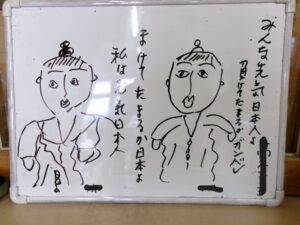 みんな元気日本人
負けてたまるかガンバレ
まけてたまるか日本よ
私は元気日本人